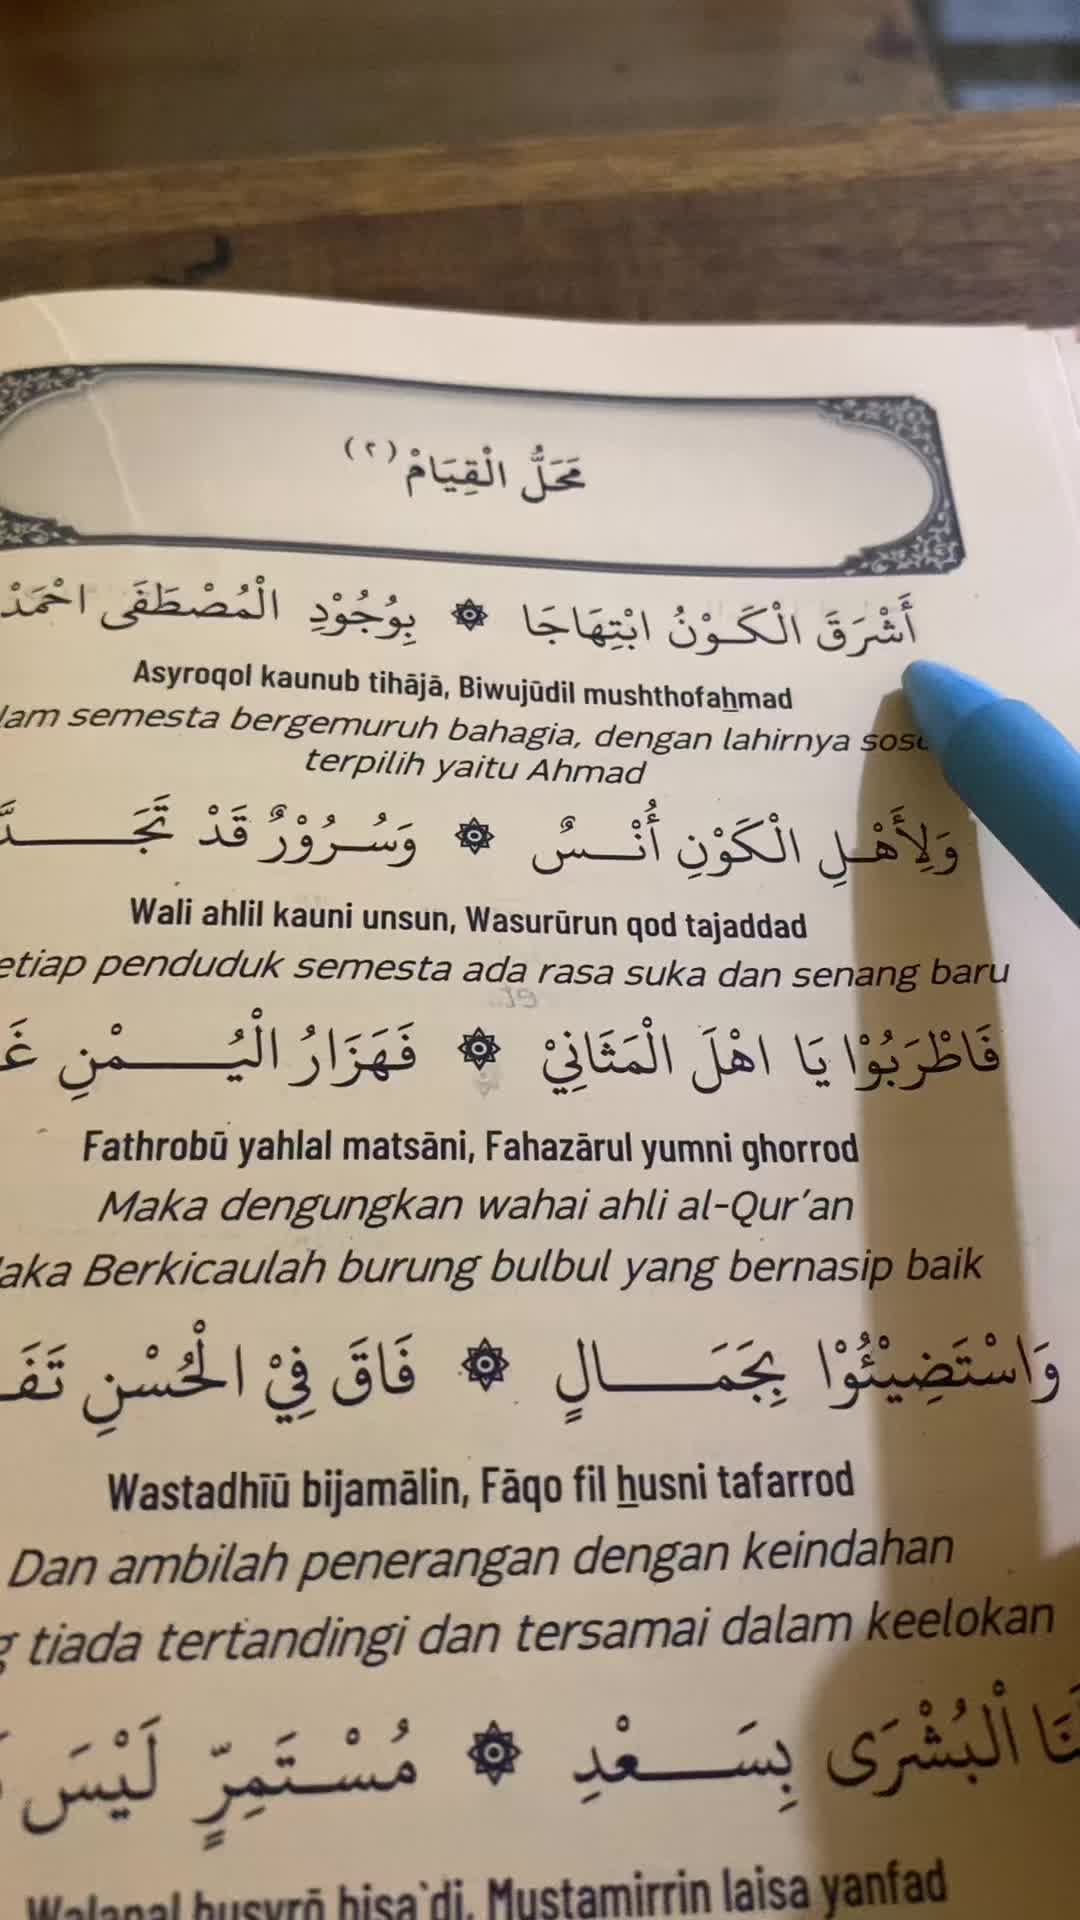 مَحَلُّ الْقِيَامْ (٢)
أَشْرَقَ الْكَوْنُ ابْتِهَاجَا ۞ بِوُجُوْدِ الْمُصْطَفَى احْمَدْ
Asyroqol kaunub tihājā, Biwujūdil mushthofahmad
semesta bergemuruh bahagia, dengan lahirnya
terpilih yaitu Ahmad
وَلِأَهْلِ الْكَوْنِ أُنْسٌ ۞ وَسُرُوْرٌ قَدْ
Wali ahlil kauni unsun, Wasurūrun qod tajaddad
penduduk semesta ada rasa suka dan senang baru
فَاطْرَبُوْا يَا اهْلَ الْمَثَانِيْ ۞ فَهَزَارُ الْيُمْنِ
Fathrobū yahlal matsāni, Fahazārul yumni ghorrod
Maka dengungkan wahai ahli al-Qur'an
Berkicaulah burung bulbul yang bernasip baik
وَاسْتَضِيْئُوْا بِجَمَالٍ ۞ فَاقَ فِيْ الْحُسْنِ
Wastadhīū bijamālin, Fāqo fil husni tafarrod
Dan ambilah penerangan dengan keindahan
tiada tertandingi dan tersamai dalam keelokan
الْبُشْرَى بِسَعْدِ ۞ مُسْتَمِرٍّ لَيْسَ
Walanal busyrō bisa`di, Mustamirrin laisa yanfad